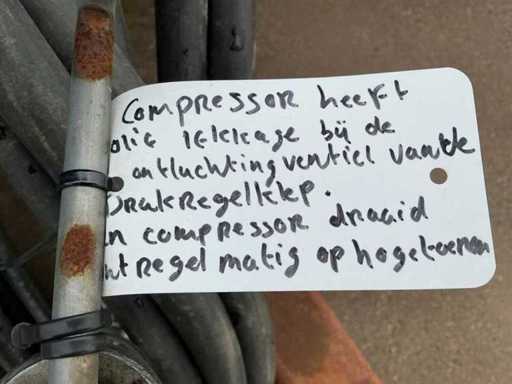 Compressor heeft
olie lekkage bij de
ontluchting ventiel van de
Drukregelklep.
en compressor draaid
regel matig op hogetoeren